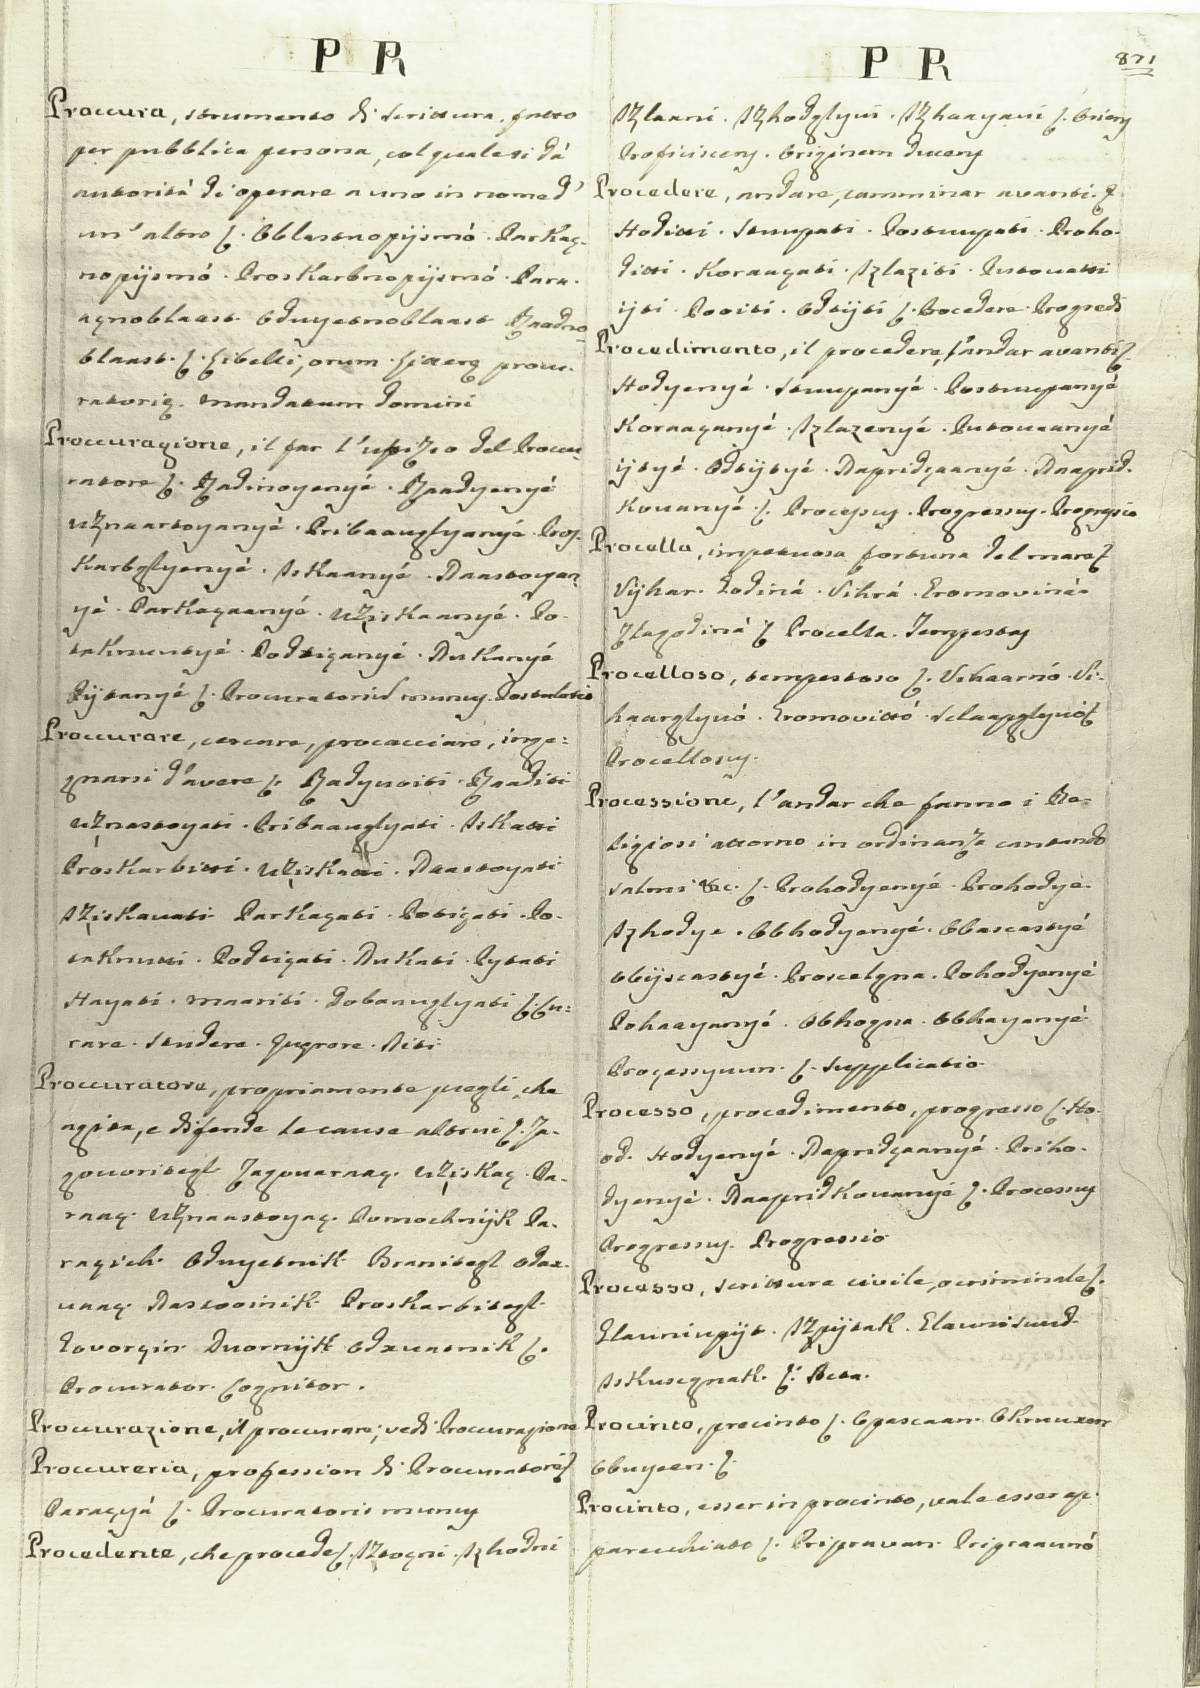 P R
Proccura, strumento di scrittura fatto
per pubblica persona, col quale si dá
autoritá di operare a uno in nome d'
un'altro ʃ. Oblastnopijsmó. Parkaç-
nopijsmó. Proskarbnopijsmó. Para-
çnoblaast. Oduyetnoblaast.
blaast. ʃ. Libelli, orum. procu-
ratoriç. mandatum Domini
Proccuragione, il far l'ufizio del Proccu-
ratore ʃ. Ʒadinoyenyé. Ʒaadyenyé
uʒnaastoyanyé. Pribaauglyanyé. Pros-
karbglyenyé. Iskaanyé. Naastoyan-
yé. Parkaçaanyé. uʒiskaanyé. Po-
taknuutyé. Podtiçanyé. Nukanyé
Pijtanyé ʃ. Procuratoris munus. Postulatio
Proccurare, cercare, procacciare, inge-
gnarsi d'avere ʃ. Ʒadynoiti. Ʒaaditi
uʒnastoyati. Pribaauglyati. Iskatti
Proskarbitti. uʒiskatti. Naastoyati
Iʒiskauati Parkaçati. Potiçati. Po-
taknutti. Podtiçati. Nukati. Pytati
Hayati. maariti. Dobaauglyati ʃ. Cu-
rare. Studere. Quçrere. Niti
Proccuratore, propriamente quegli, che
agita, e difende le cause altrui ʃ. Ʒa-
gouoritegl Ʒagouaraaç. uʒiskaç. Pa-
raaç. uʒnaastoyaç. Pomochnijk Pa-
raçich. Oduyetnik Branitegl
Nastoinik Proskarbitegl
Govorçin Duornijk ʃ.
Procurator. Cognitor.
Proccurazione, il proccurare; vedi Proccuragione
Proccureria, profession di Proccuratore ʃ
Paraçyá ʃ. Procuratoris munus
Procedente, che procede ʃ. Iʒtoçni. Iʒhodni
P R 871
Iʒlaani. Iʒhodglyui. Iʒhaayaui ʃ. Oriens
Proficiscens. Originem ducens
Procedere, andare, camminar avanti. ʃ
Hoditti. Stuupati. Postuupati. Proho-
ditti. Koraaçati. Iʒlaʒiti. Putouatti
ijti. Pooiti. Odtijti ʃ. Procedere. Progredi
Procedimento, il procedere, l'andar avanti ʃ
Hodyenyé. Stuupanyé. Postuupanyé
Koraaçanyé. Iʒlazenyé. Putouaanyé
ijtyé. Odtijtyé. Napridçaanyé. Naaprid-
kouanyé. ʃ. Processus. Progressus. Progressio
Procella, impetuosa fortuna del mare ʃ
Vijhar. Godiná. Vihrá. Gromoviná
Ʒlagodiná ʃ Procella. Tempestas
Procelloso, tempestoso ʃ. Vihaarnó. Vi-
haarglyuó. Gromovittó. Sclaapglyuó ʃ
Procellosus.
Processione, l'andar che fanno i Re-
ligiosi attorno in ordinanza cantando
salmi &c. ʃ. Prohodyenyé. Prohodye.
Iʒhodye. Obhodyenyé. Obascastyé
Obijscastyé. Proscetgna. Pohodyenyé
Pohaayanyé. Obhogna. Obhayanyé
Proçessyuun. ʃ. Supplicatio.
Processo, procedimento, progresso ʃ. Ho-
od. Hodyenyé. Napridçaanyé. Priho-
dyenyé. Naapridkouanyé ʃ. Processus
Progressus. Progressio
Processo, scritture civile, o criminale ʃ.
Glauniupijt. Iʒpijtak. Glaunisuud.
Iskusegnak. ʃ. Acta.
Procinto, precinto ʃ. Opascaan. Okruuxen
Obuyeen. ʃ.
Procinto, esser in procinto, vale esser ap-
parecchiato ʃ. Pripravan. Pripraaunó